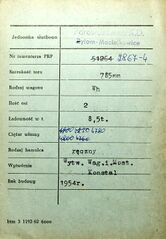 Jednostka służbowa
Bytom-Maciejkowice
Nr inwentarza PKP 51264 9867-4
Szerokość toru 785mm
Rodzaj wagonu Wh
Ilość osi 2
Ładowność w t. 8,5t.
Ciężar własny
Rodzaj hamulca ręczny
Wytwórnia Wytw. Wag.i Most.
Konstal
Rok budowy 1954r.